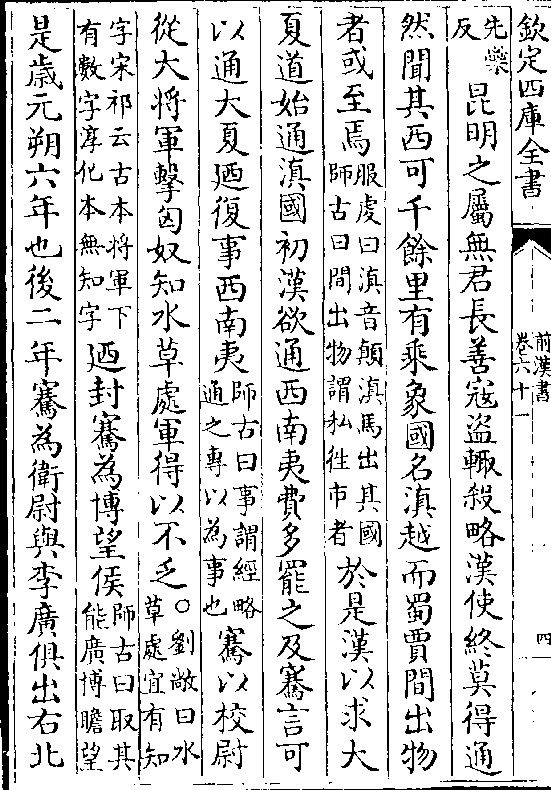 欽定四庫全書
前漢書
卷六十一
四
先蘂
反
昆明之屬無君長善寇盜輒殺略漢使終莫得通
然聞其西可千餘里有乘象國名滇越而蜀賈間出物
者或至焉
服虔曰滇音顛滇馬出其國
師古曰間出物謂私徃市者
於是漢以求大
夏道始通滇國初漢欲通西南夷費多罷之及騫言可
以通大夏廼復事西南夷
師古曰事謂經略
通之專以為事也
騫以校尉
從大将軍擊匈奴知水草處軍得以不乏
○劉敞曰水
草處宜有知
字宋祁云古本将軍下
有數字淳化本無知字
廼封騫為博望侯
師古曰取其
能廣博瞻望
是歳元朔六年也後二年騫為衛尉與李廣俱出右北